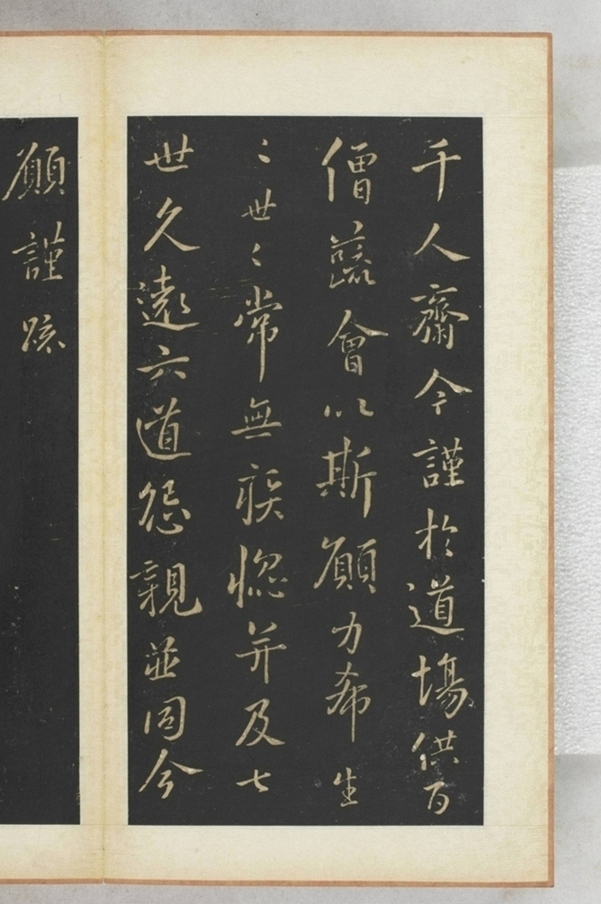 千人齋今謹於道場供百
僧蔬會以斯願力希生
〻世〻常無疾惱并及七
世久遠六道怨親並同今
願謹疏